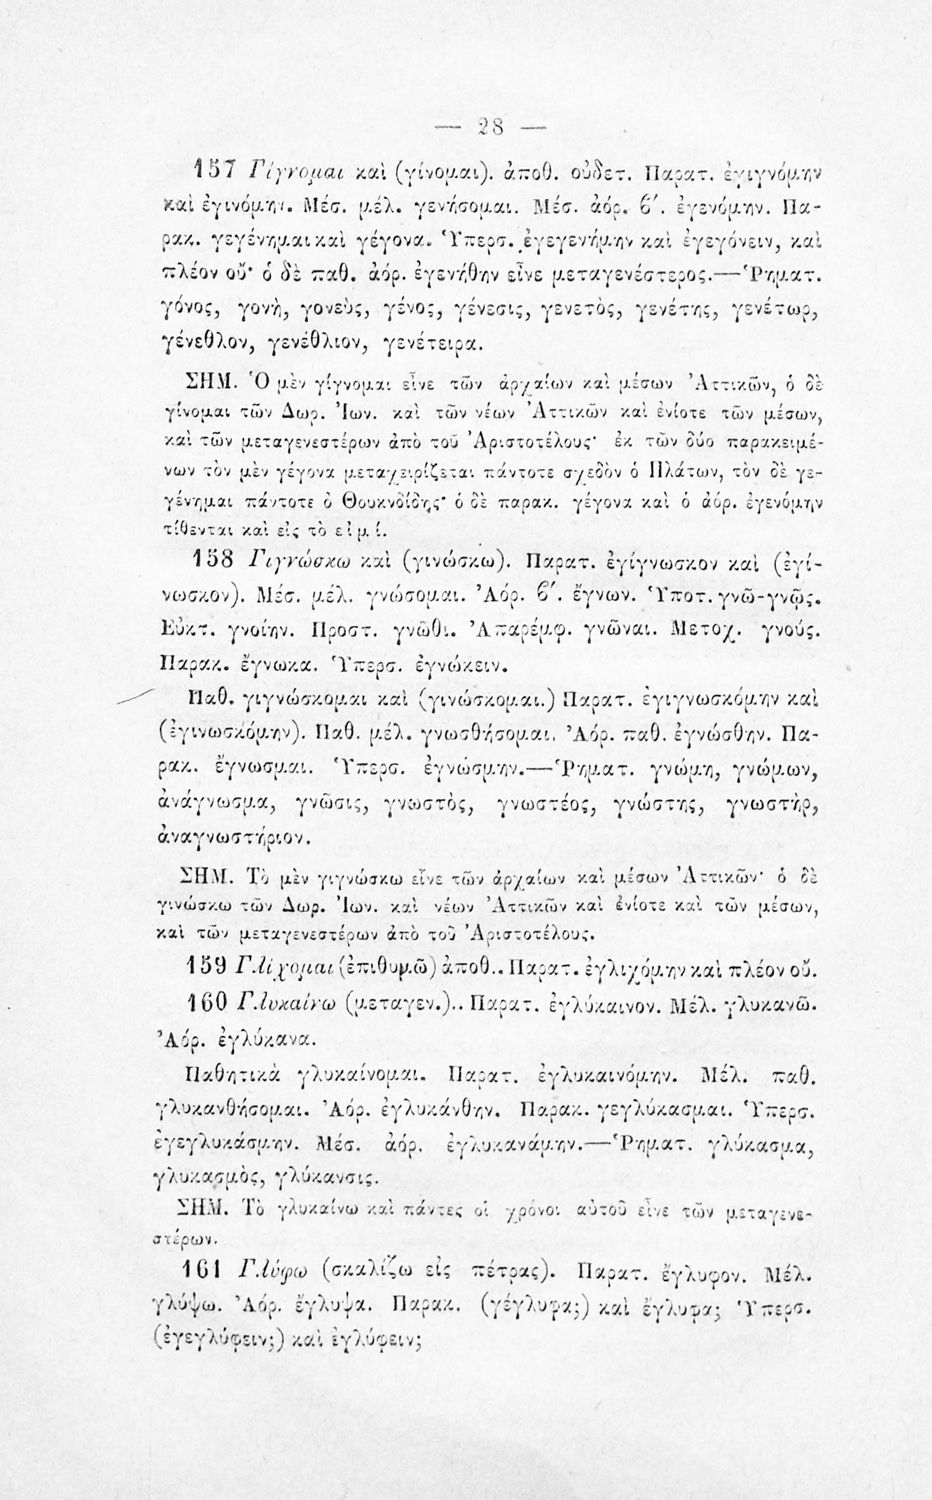 — 28 —
157 Γίγνομαι καὶ (γίνομαι). ἀποθ. οὐδετ. Παρατ. ἐγιγνόμην
καὶ ἐγινόμην. Μέσ. μέλ. γενήσομαι. Μέσ. ἀόρ. ϐ'. ἐγενόμην. Πα-
ρακ. γεγένημαι καὶ γέγονα. Ὑπερσ. ἐγεγενήμην καὶ ἐγεγόνειν, καὶ
πλέον οὔ· ὁ δὲ παθ. ἀόρ. ἐγενήθην εἶνε μεταγενέστερος.—Ῥηματ.
γόνος, γονὴ, γονεὺς, γένος, γένεσις, γενετὸς, γενέτης, γενέτωρ,
γένεθλον, γενέθλιον, γενέτειρα.
ΣΗΜ. Ὁ μὲν γίγνομαι εἶνε τῶν ἀρχαίων καὶ μέσων Ἀττικῶν, ὁ δὲ
γίνομαι τῶν Δωρ. Ἰων. καὶ τῶν νέων Ἀττικῶν καὶ ἐνίοτε τῶν μέσων,
καὶ τῶν μεταγενεστέρων ἀπὸ τοῦ Ἀριστοτέλους· ἐκ τῶν δύο παρακειμέ-
νων τὸν μὲν γέγονα μεταχειρίζεται πάντοτε σχεδὸν ὁ Πλάτων, τὸν δὲ γε-
γένημαι πάντοτε ὁ Θουκνδίδης· ὁ δὲ παρακ. γέγονα καὶ ὁ ἀόρ. ἐγενόμην
τίθενται καὶ εἰς τὸ εἰμί.
158 Γιγνώσκω καὶ (γινώσκω). Παρατ. ἐγίγνωσκον καὶ (ἐγί-
νωσκον). Μέσ. μέλ. γνώσομαι. Ἀόρ. ϐ'. ἔγνων. Ὑποτ. γνῶ-γνῷς.
Εὐκτ. γνοίην. Προστ. γνῶθι. Ἀπαρέμφ. γνῶναι. Μετοχ. γνούς.
Παρακ. ἔγνωκα. Ὑπερσ. ἐγνώκειν.
Παθ. γιγνώσκομαι καὶ (γινώσκομαι.) Παρατ. ἐγιγνωσκόμην καὶ
(ἐγινωσκόμην). Παθ. μέλ. γνωσθήσομαι. Ἀόρ. παθ. ἐγνώσθην. Πα-
ρακ. ἔγνωσμαι. Ὑπερσ. ἐγνώσμην.—Ῥηματ. γνώμη, γνώμων,
ἀνάγνωσμα, γνῶσις, γνωστὸς, γνωστέος, γνώστης, γνωστὴρ,
ἀναγνωστήριον.
ΣΗΜ. Τὸ μὲν γιγνώσκω εἶνε τῶν ἀρχαίων καὶ μέσων Ἀττικῶν· ὁ δὲ
γινώσκω τῶν Δωρ. Ἰων. καὶ νέων Ἀττικῶν καὶ ἐνίοτε καὶ τῶν μέσων,
καὶ τῶν μεταγενεστέρων ἀπὸ τοῦ Ἀριστοτέλους.
159 Γλίχομαι (ἐπιθυμῶ) ἀποθ.. Παρατ. ἐγλιχόμην καὶ πλέον οὔ.
160 Γλυκαίνω (μεταγεν.).. Παρατ. ἐγλύκαινον. Μέλ. γλυκανῶ.
Ἀόρ. ἐγλύκανα.
Παθητικὰ γλυκαίνομαι. Παρατ. ἐγλυκαινόμην. Μέλ. παθ.
γλυκανθήσομαι. Ἀόρ. ἐγλυκάνθην. Παρακ. γεγλύκασμαι. Ὑπερσ.
ἐγεγλυκάσμην. Μέσ. ἀόρ. ἐγλυκανάμην.—Ῥηματ. γλύκασμα,
γλυκασμὸς, γλύκανσις.
ΣΗΜ. Τὸ γλυκαίνω καὶ πάντες οἱ χρόνοι αὐτοῦ εἶνε τῶν μεταγενε-
στέρων.
161 Γλύφω (σκαλίζω εἰς πέτρας). Παρατ. ἔγλυφον. Μέλ.
γλύψω. Ἀόρ. ἔγλυψα. Παρακ. (γέγλυφα;) καὶ ἔγλυφα; Ὑπερσ.
(ἐγεγλύφειν;) καὶ ἐγλύφειν;